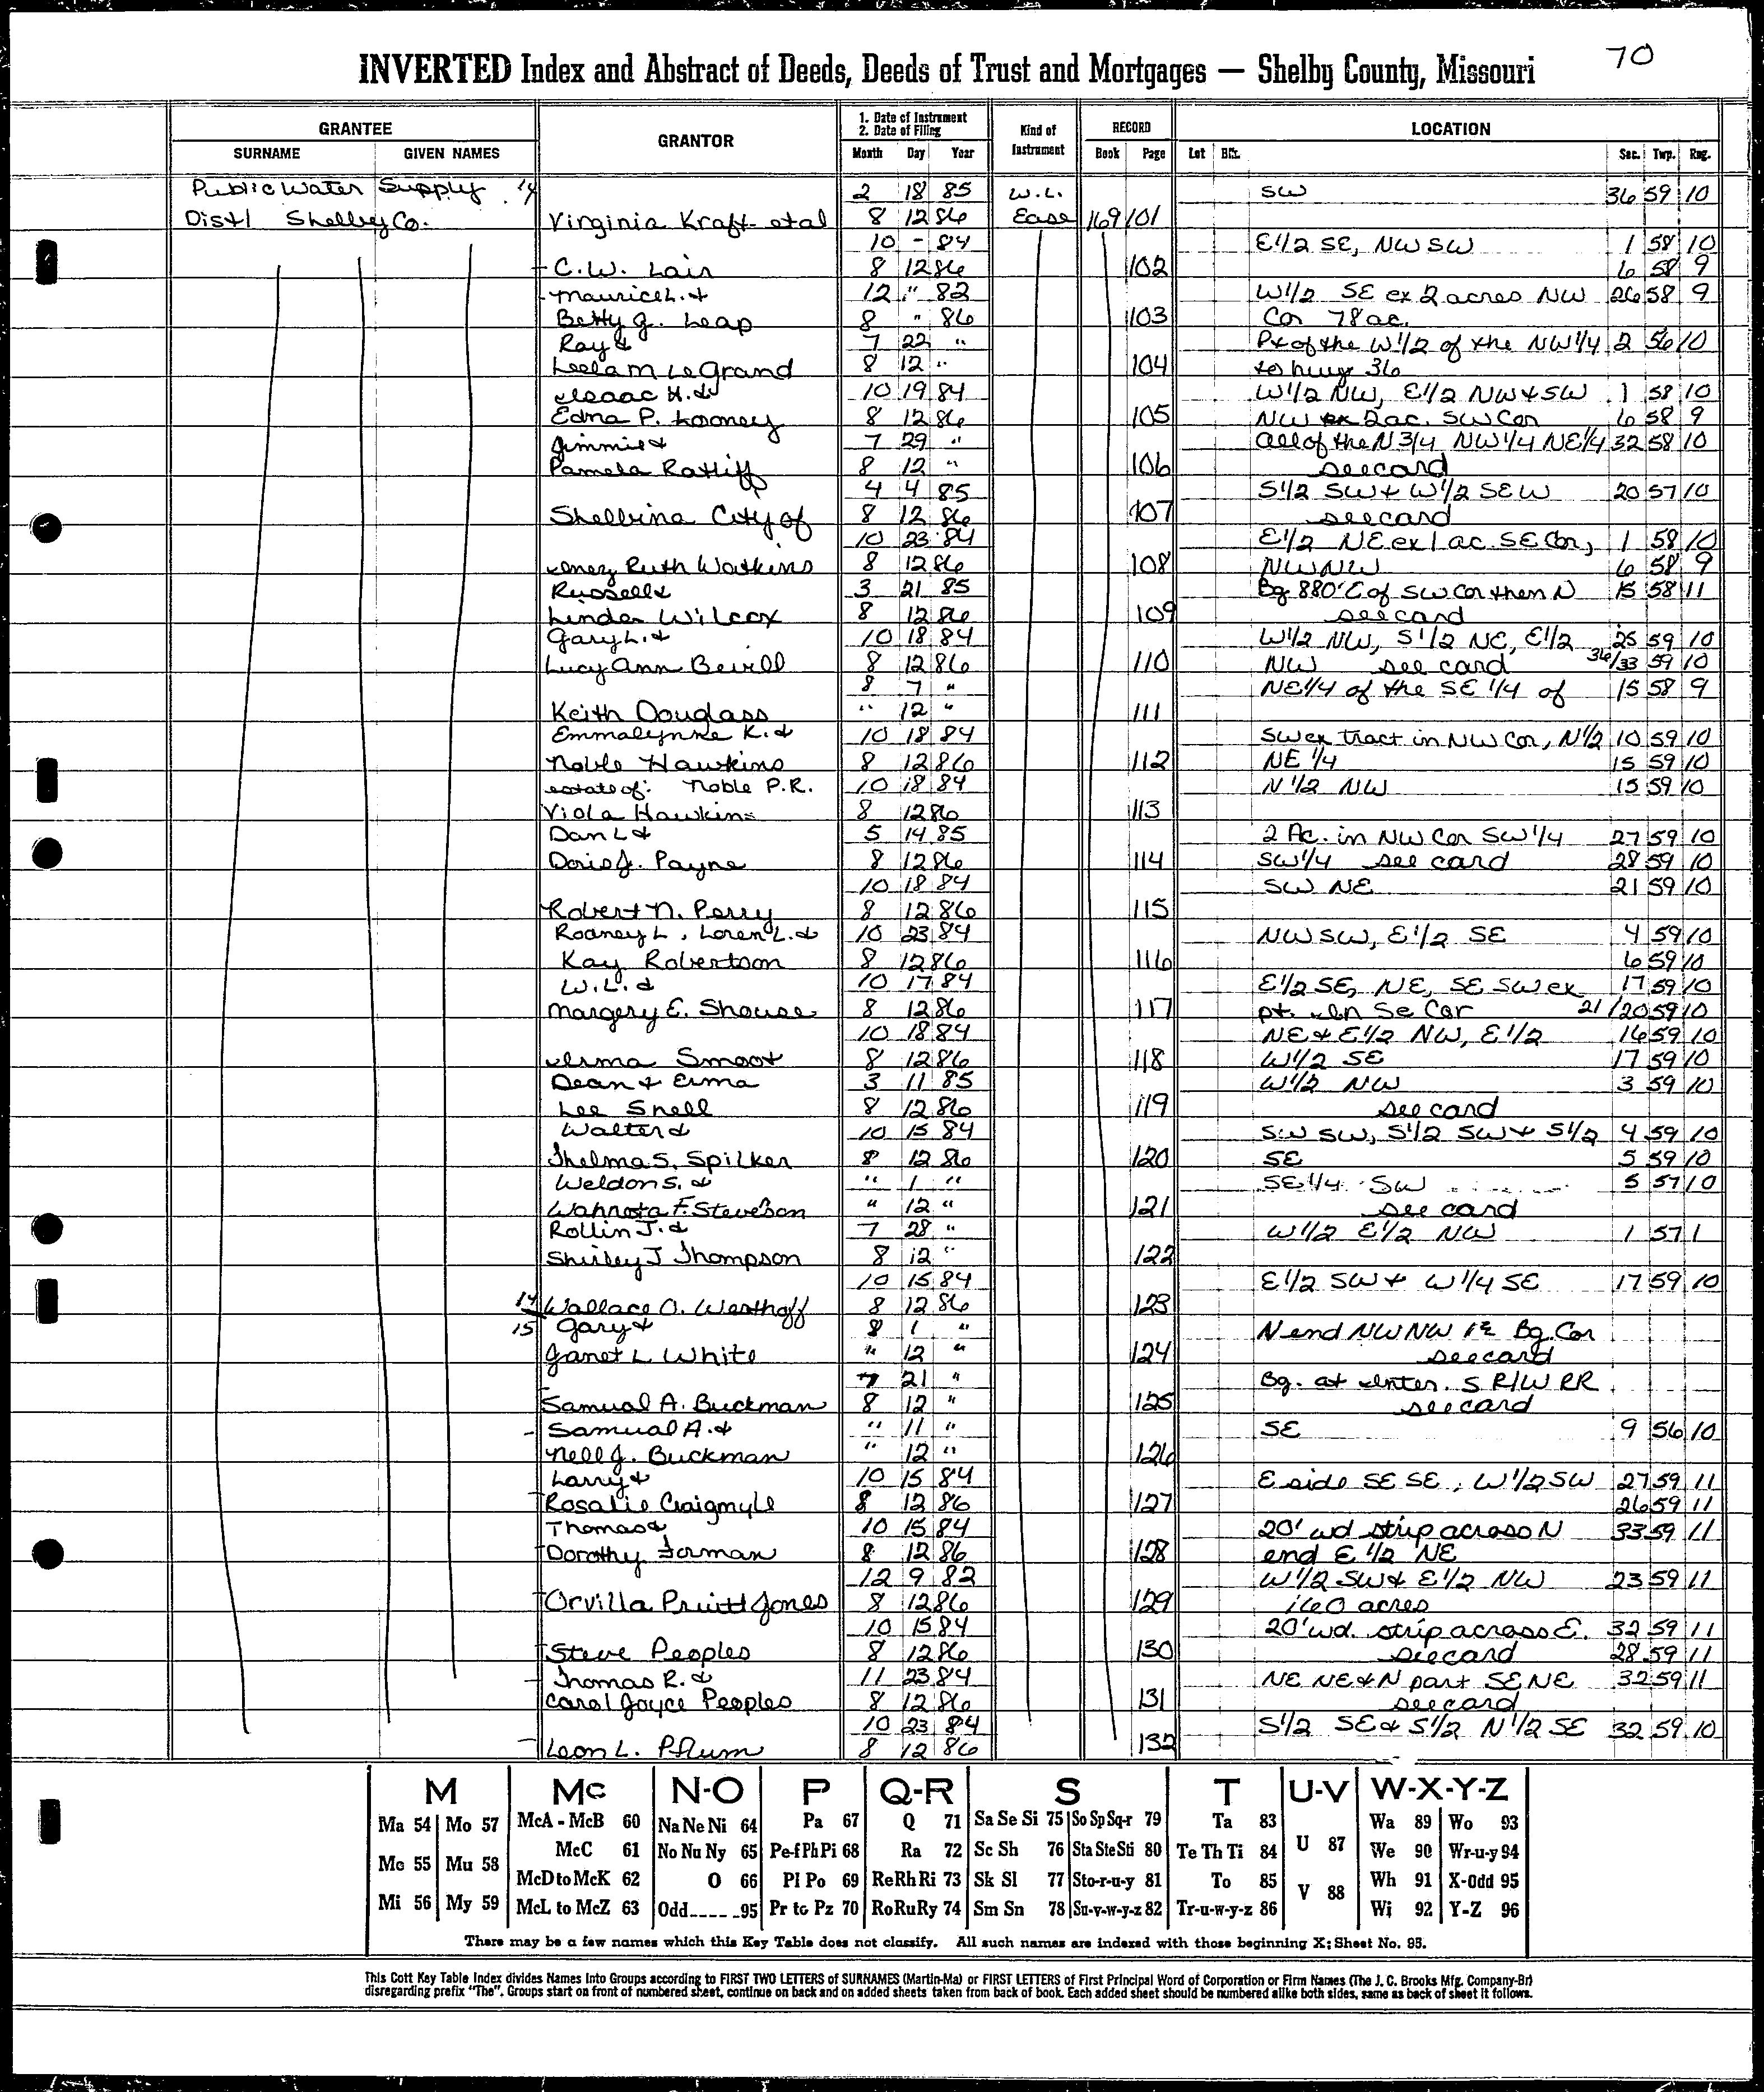 70
INVERTED Index and Abstract of Deeds, Deeds of Trust and Mortgages — Shelby County, Missouri
GRANTEE GRANTOR 1. Date of Instrument 2. Date of Filing Kind of Instrument RECORD LOCATION
SURNAME GIVEN NAMES Month Day Year Book Page Lot Blk. Sec. Twp. Rng.
Public Water Supply 14 2 18 85 W.L. SW 36 59 10
Dist 1 Shelby Co. Virginia Kraft et al 8 12 86 Ease 169 101
10 - 84 E1/2 SE, NW SW 1 58 10
C.W. Lair 8 12 86 102 6 58 9
Maurice L. & 12 " 82 W1/2 SE ex 2 acres NW 26 58 9
Betty J. Leap 8 " 86 103 Cor 78 ac.
Ray & 7 22 " Pt of the W1/2 of the NW1/4 2 56 10
Leela M LeGrand 8 12 " 104 to hwy 36
Isaac H. & 10 19 84 W1/2 NW, E1/2 NW & SW 1 58 10
Edna P. Looney 8 12 86 105 NW ex 2 ac. SW Cor 6 58 9
Jimmie & 7 29 " All of the N 3/4 NW1/4 NE1/4 32 58 10
Pamela Ratliff 8 12 " 106 see card
4 4 85 S1/2 SW & W1/2 SEW 20 57 10
Shelbina City of 8 12 86 107 see card
10 23 84 E1/2 NE ex 1 ac. SE Cor, 1 58 10
Inez Ruth Watkins 8 12 86 108 NWNW 6 58 9
Russell & 3 21 85 Bg 880' E of SW Cor then N 15 58 11
Linda Wilcox 8 12 86 109 see card
Gary L. & 10 18 84 W1/2 NW, S1/2 NE, E1/2 25 59 10
Lucy Ann Bevill 8 12 86 110 NW see card 36/33 59 10
8 7 " NE1/4 of the SE 1/4 of 15 58 9
Keith Douglass " 12 " 111
Emmalynne K. & 10 18 84 SW ex tract in NW Cor, N1/2 10 59 10
Noble Hawkins 8 12 86 112 NE 1/4 15 59 10
estate of: Noble P.R. 10 18 84 N 1/2 NW 15 59 10
Viola Hawkins 8 12 86 113
Dan L & 5 14 85 2 Ac. in NW Cor SW1/4 27 59 10
Doris J. Payne 8 12 86 114 SW1/4 see card 28 59 10
10 18 84 SW NE 21 59 10
Robert N. Perry 8 12 86 115
Rodney L, Loren L. & 10 23 84 NW SW, E1/2 SE 4 59 10
Kay Robertson 8 12 86 116 6 59 10
W.L. & 10 17 84 E1/2 SE, NE, SE SW ex 17 59 10
Margery E. Shouse 8 12 86 117 pt. in Se Cor 21/20 59 10
10 18 84 NE & E1/2 NW, E1/2 16 59 10
Irma Smoot 8 12 86 118 W1/2 SE 17 59 10
Dean & Erma 3 11 85 W1/2 NW 3 59 10
Lee Snell 8 12 86 119 see card
Walter & 10 15 84 SW SW, S1/2 SW & S1/2 4 59 10
Thelma S. Spilker 8 12 86 120 SE 5 59 10
Weldon S. & " 1 " SE 1/4 SW 5 57 10
Wahnota F. Stevenson " 12 " 121 see card
Rollin J. & 7 28 " W1/2 E1/2 NW 1 57 1
Shirley J Thompson 8 12 " 122
10 15 84 E1/2 SW & W1/4 SE 17 59 10
14 Wallace O. Westhoff 8 12 86 123
15 Gary & 8 1 " N end NW NW Bg. Cor
Janet L White " 12 " 124 see card
7 21 " Bg. at Inter. S R/W RR
Samual A. Buckman 8 12 " 125 see card
Samual A. & " 11 " SE 9 56 10
Nell J. Buckman " 12 " 126
Larry & 10 15 84 E side SE SE, W1/2 SW 27 59 11
Rosalie Craigmyle 8 12 86 127 26 59 11
Thomas & 10 15 84 20' wd strip across N 33 59 11
Dorothy Forman 8 12 86 128 end E 1/2 NE
12 9 82 W1/2 SW & E1/2 NW 23 59 11
Orvilla Pruitt Jones 8 12 86 129 160 acres
10 15 84 20' wd. strip across E. 32 59 11
Steve Peoples 8 12 86 130 see card 28 59 11
Thomas R. & 11 23 84 NE NE & N part SE NE 32 59 11
Carol Joyce Peoples 8 12 86 131 see card
10 23 84 S1/2 SE & S1/2 N1/2 SE 32 59 10
Leon L. Pflum 8 12 86 132
M Mc N-O P Q-R S T U-V W-X-Y-Z
Ma 54 Mo 57 McA - McB 60 Na Ne Ni 64 Pa 67 Q 71 Sa Se Si 75 So Sp Sq-r 79 Ta 83 U 87 Wa 89 Wo 93
Me 55 Mu 58 McC 61 No Nu Ny 65 Pe-f Ph Pi 68 Ra 72 Sc Sh 76 Sta Ste Sti 80 Te Th Ti 84 We 90 Wr-u-y 94
McD to McK 62 O 66 Pl Po 69 Re Rh Ri 73 Sk Sl 77 Sto-r-u-y 81 To 85 V 88 Wh 91 X-Odd 95
Mi 56 My 59 McL to McZ 63 Odd_____95 Pr to Pz 70 Ro Ru Ry 74 Sm Sn 78 Su-v-w-y-z 82 Tr-u-w-y-z 86 Wi 92 Y-Z 96
There may be a few names which this Key Table does not classify. All such names are indexed with those beginning X; Sheet No. 95.
This Cott Key Table Index divides Names Into Groups according to FIRST TWO LETTERS of SURNAMES (Martin-Ma) or FIRST LETTERS of First Principal Word of Corporation or Firm Names (The J. C. Brooks Mfg. Company-Br)
disregarding prefix "The". Groups start on front of numbered sheet, continue on back and on added sheets taken from back of book. Each added sheet should be numbered alike both sides, same as back of sheet it follows.